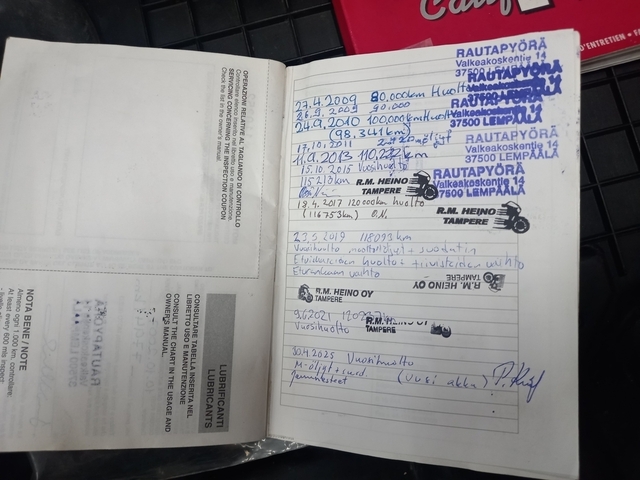 OPERAZIONI RELATIVE AL TAGLIANDO DI CONTROLLO
Controllare elenco inserito nel libretto uso e manutenzione.
SERVICING CONCERNING THE INSPECTION COUPON
Check the list in the owner's manual.
NOTA BENE / NOTE
Almeno ogni 1.000 km. controllare:
At least every 600 mls inspect:
LUBRIFICANTI
LUBRICANTS
CONSULTARE TABELLA INSERITA NEL
LIBRETTO USO E MANUTENZIONE
CONSULT THE CHART IN THE USAGE AND
OWNER'S MANUAL.
Calif
D'ENTRETIEN
RAUTAPYÖRÄ
Valkeakoskentie 14
37500 LEMPÄÄLÄ
27.4.2009 80.000km Huolto
RAUTAPYÖRÄ
26.9.2009 90.000
24.9.2010 100000km Huolto
(98.341km)
17.10.2011
RAUTAPYÖRÄ
Valkeakoskentie 14
37500 LEMPÄÄLÄ
11.9.2013 km
15.10.2015 Vuosihuolto
115213km
R.M. HEINO
TAMPERE
RAUTAPYÖRÄ
Valkeakoskentie 14
37500 LEMPÄÄLÄ
18.4.2017 120000km huolto
(116753km) O.N.
R.M. HEINO
TAMPERE
23.5 2019 118093km
Vuosihuolto, moottoriöljyt + suodatin
Etuiskareiden huolto + tiivisteiden vaihto
Eturenkaan vaihto
R.M. HEINO OY
TAMPERE
R.M. HEINO OY
TAMPERE
9.6.2021
Vuosihuolto
R.M. HEINO OY
TAMPERE
30.4.2025 Vuosihuolto
M-öljyt + suod
Jarrunesteet (Uusi akku)